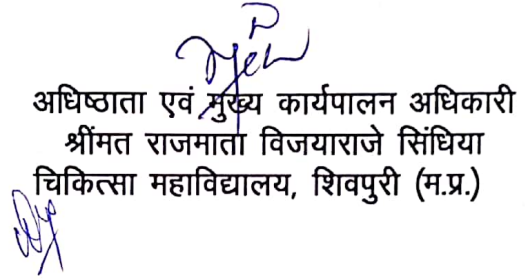 अधिष्ठाता एवं मुख्य कार्यपालन अधिकारी
श्रींमत राजमाता विजयाराजे सिंधिया
चिकित्सा महाविद्यालय, शिवपुरी (म.प्र.)